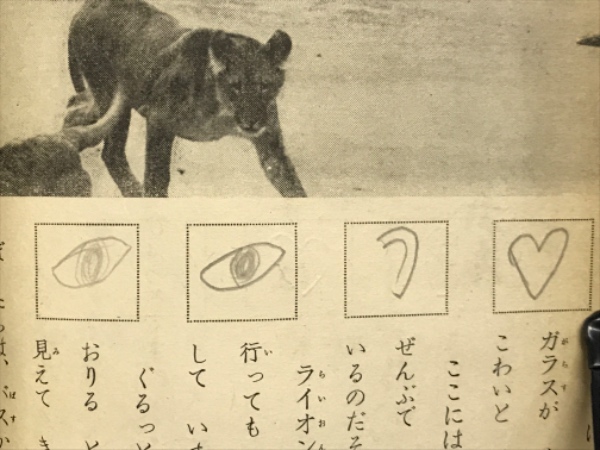 ガラスが
こわいと
ここには
ぜんぶで
いるのだそ
ライオン
行っても
して い
ぐるっと
おりる と
見えて き
ちは、バスか